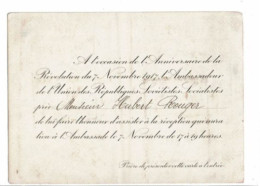 A l'occasion de l'Anniversaire de la
Révolution du 7 Novembre 1917, l'Ambassadeur
de l'Union des Républiques Soviétistes Socialistes
prie Monsieur Hubert Rouger
de lui faire l'honneur d'assister à la réception qui aura
lieu à l'Ambassade le 7 Novembre de 17 à 19 heures.
Prière de présenter cette carte à l'entrée